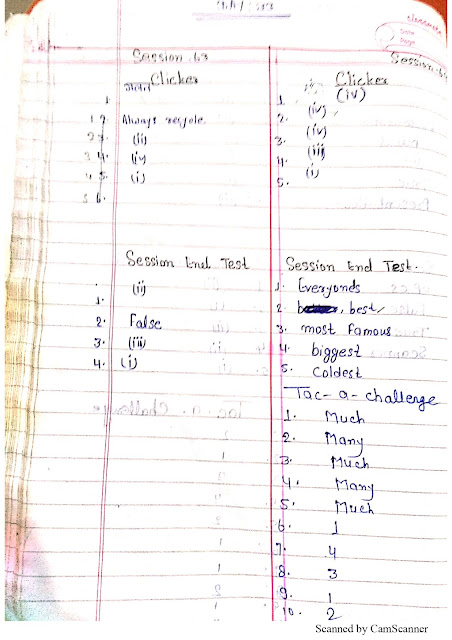 classmate
Date
Page
Session 63
Clicker
गलत
1
1 2. Always recycle
2 3. (ii)
3 4. (iv)
4 5. (i)
5 6.
Session End Test
(ii)
1.
2. False
3. (iii)
4. (i)
Session
Clicker
1. (iv)
2. (iv)
3. (iv)
4. (iii)
5. (i)
Session End Test.
1. Everyonds
2. best
3. most famous
4. biggest
5. Coldest
Tac-a-challenge
1. Much
2. Many
3. Much
4. Many
5. Much
6. 1
7. 4
8. 3
9. 1
10. 2
Scanned by CamScanner